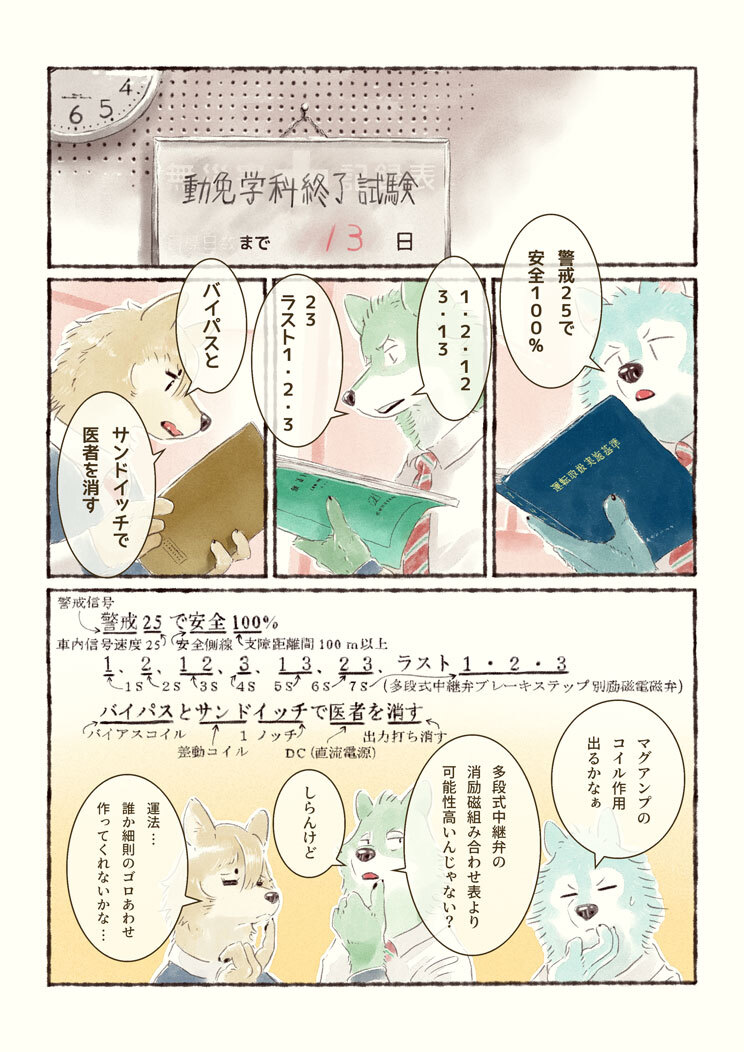 4
5
6
動免学科終了試験
まで 13 日
警戒25で
安全100%
運転取扱実施基準
1・2・12
3・13
23
ラスト1・2・3
バイパスと
サンドイッチで
医者を消す
警戒信号
警戒 25 で安全 100%
車内信号速度 25 安全側線 支障距離間 100 m以上
1、2、12、3、13、23、ラスト 1・2・3
1S 2S 3S 4S 5S 6S 7S (多段式中継弁ブレーキステップ別励磁電磁弁)
バイパスとサンドイッチで医者を消す
バイアスコイル 1 ノッチ 出力打ち消す
差動コイル DC (直流電源)
マグアンプの
コイル作用
出るかなぁ
多段式中継弁の
消励磁組み合わせ表より
可能性高いんじゃない?
しらんけど
運法…
誰か細則のゴロあわせ
作ってくれないかな…